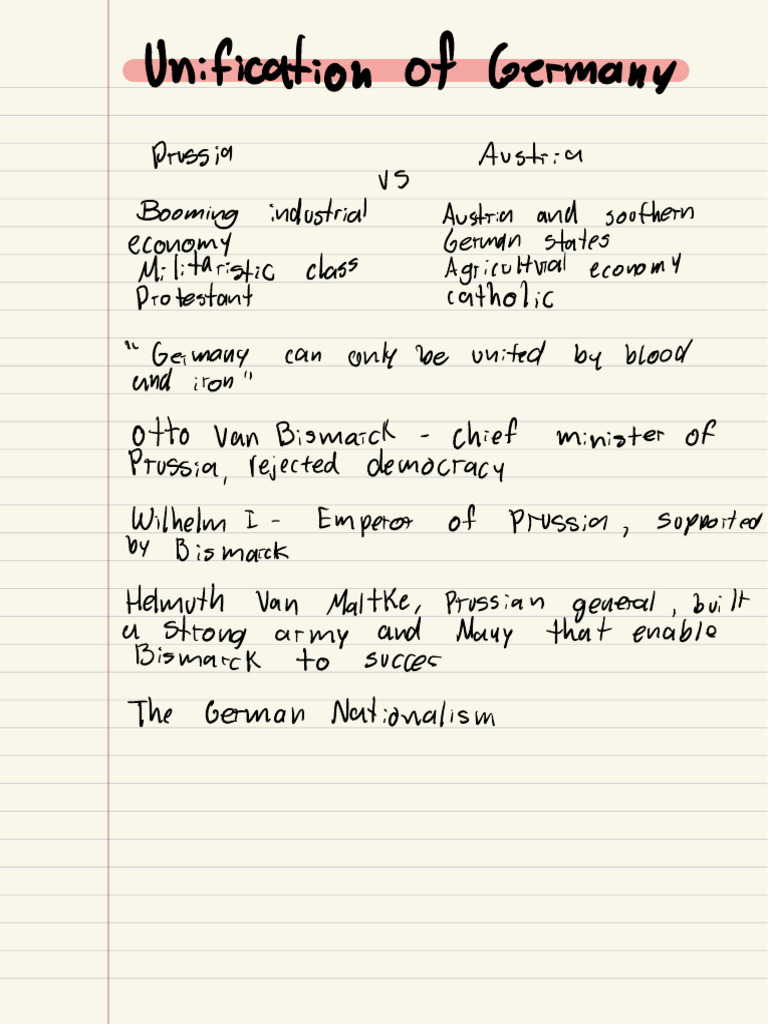 Unification of Germany
Prussia Austria
VS
Booming industrial Austria and soothern
economy German states
Militaristic class Agricultural economy
Protestant catholic
"Germany can only be united by blood
and iron"
Otto Van Bismarck - chief minister of
Prussia, rejected democracy
Wilhelm I - Emperor of Prussia, supported
by Bismarck
Helmuth Van Maltke, Prussian general, built
a strong army and Navy that enable
Bismarck to succes
The German Nationalism